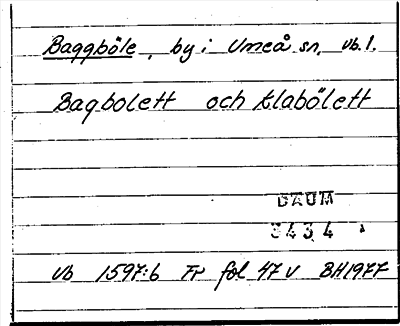 Baggböle, by i Umeå sn. Vb.1.
Bagbolett och klabölett
DAUM
3434
Vb 1597:6 Fr fol 47 v BH1977